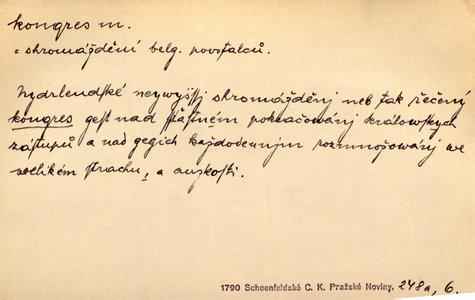 kongres m.
= shromáždění belg. povstalců.
Nydrlendské neywyšssj shromážděnj neb tak řečený
kongres gest nad sstastném pokračowánj králowských
zástupů a nad gegich každodenným rozmnožowánj we
welikém strachu, a auzkosti.
1790 Schoenfeldské C. K. Pražské Noviny, 248a, 6.